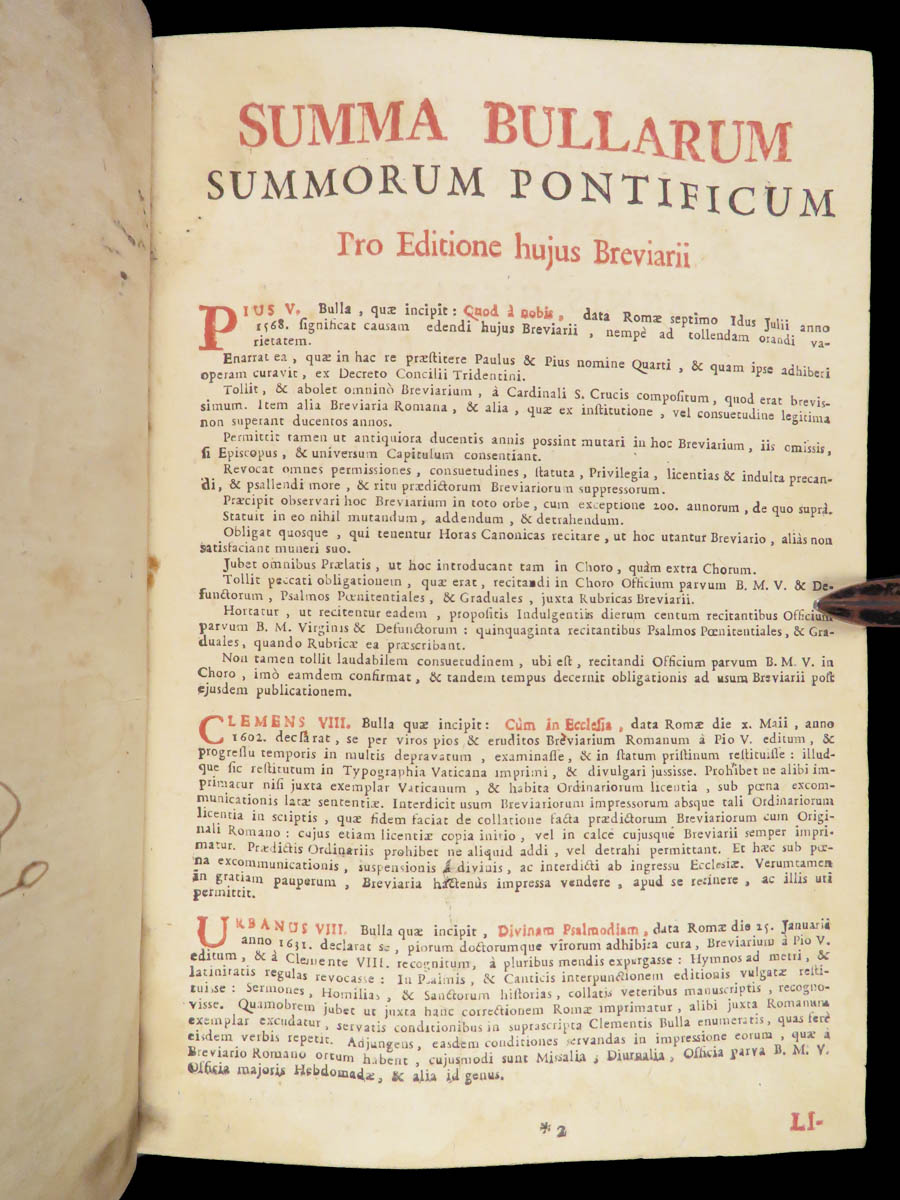 SUMMA BULLARUM
SUMMORUM PONTIFICUM
Pro Editione hujus Breviarii
PIUS V. Bulla, quæ incipit: Quod à nobis, data Romæ septimo Idus Julii anno
1568. ſignificat cauſam edendi hujus Breviarii, nempè ad tollendam orandi va-
rietatem.
Enarrat ea, quæ in hac re præſtitere Paulus & Pius nomine Quarti, & quam ipſe adhiberi
operam curavit, ex Decreto Concilii Tridentini.
Tollit, & abolet omninò Breviarium, à Cardinali S. Crucis compoſitum, quod erat breviſ-
ſimum. Item alia Breviaria Romana, & alia, quæ ex inſtitutione, vel conſuetudine legitima
non ſuperant ducentos annos.
Permittit tamen ut antiquiora ducentis annis poſſint mutari in hoc Breviarium, iis omiſſis,
ſi Epiſcopus, & univerſum Capitulum conſentiant.
Revocat omnes permiſſiones, conſuetudines, ſtatuta, Privilegia, licentias & indulta precan-
di, & pſallendi more, & ritu prædictorum Breviariorum ſuppreſſorum.
Præcipit obſervari hoc Breviarium in toto orbe, cum exceptione 200. annorum, de quo ſuprà.
Statuit in eo nihil mutandum, addendum, & detrahendum.
Obligat quoſque, qui tenentur Horas Canonicas recitare, ut hoc utantur Breviario, aliàs non
ſatisfaciant muneri ſuo.
Jubet omnibus Prælatis, ut hoc introducant tam in Choro, quàm extra Chorum.
Tollit peccati obligationem, quæ erat, recitandi in Choro Officium parvum B. M. V. & De-
functorum, Pſalmos Pœnitentiales, & Graduales, juxta Rubricas Breviarii.
Hortatur, ut recitentur eadem, propoſitis Indulgentiis dierum centum recitantibus Officium
parvum B. M. Virginis & Defunctorum: quinquaginta recitantibus Pſalmos Pœnitentiales, & Gra-
duales, quando Rubricæ ea præſcribant.
Non tamen tollit laudabilem conſuetudinem, ubi eſt, recitandi Officium parvum B. M. V. in
Choro, imò eamdem confirmat, & tandem tempus decernit obligationis ad uſum Breviarii poſt
ejuſdem publicationem.
CLEMENS VIII. Bulla quæ incipit: Cùm in Eccleſia, data Romæ die x. Maii, anno
1602. declarat, ſe per viros pios & eruditos Breviarium Romanum à Pio V. editum, &
progreſſu temporis in multis depravatum, examinaſſe, & in ſtatum priſtinum reſtituiſſe: illud-
que ſic reſtitutum in Typographia Vaticana imprimi, & divulgari juſſiſſe. Prohibet ne alibi im-
primatur niſi juxta exemplar Vaticanum, & habita Ordinariorum licentia, ſub pœna excom-
municationis latæ ſententiæ. Interdicit uſum Breviariorum impreſſorum abſque tali Ordinariorum
licentia in ſcriptis, quæ fidem faciat de collatione facta prædictorum Breviariorum cum Origi-
nali Romano: cujus etiam licentiæ copia initio, vel in calce cujuſque Breviarii ſemper impri-
matur. Prædictis Ordinariis prohibet ne aliquid addi, vel detrahi permittant. Et hæc ſub pœ-
na excommunicationis, ſuſpenſionis à divinis, ac interdicti ab ingreſſu Eccleſiæ. Verumtamen
in gratiam pauperum, Breviaria hactenùs impreſſa vendere, apud ſe retinere, ac illis uti
permittit.
URBANUS VIII. Bulla quæ incipit, Divinam Pſalmodiam, data Romæ die 25. Januarii
anno 1631. declarat ſe, piorum doctorumque virorum adhibita cura, Breviarium à Pio V.
editum, & à Clemente VIII. recognitum, à pluribus mendis expurgaſſe: Hymnos ad metri, &
latinitatis regulas revocaſſe: In Pſalmis, & Canticis interpunctionem editionis vulgatæ reſti-
tuiſſe: Sermones, Homilias, & Sanctorum hiſtorias, collatis veteribus manuſcriptis, recogno-
viſſe. Quamobrem jubet ut juxta hanc correctionem Romæ imprimatur, alibi juxta Romanum
exemplar excudatur, ſervatis conditionibus in ſupraſcripta Clementis Bulla enumeratis, quas ferè
eiſdem verbis repetit. Adjungens, eaſdem conditiones ſervandas in impreſſione eorum, quæ à
Breviario Romano ortum habent, cujuſmodi ſunt Miſſalia, Diurnalia, Officia parva B. M. V.
Officia majoris Hebdomadæ, & alia id genus.
* 2
LI-